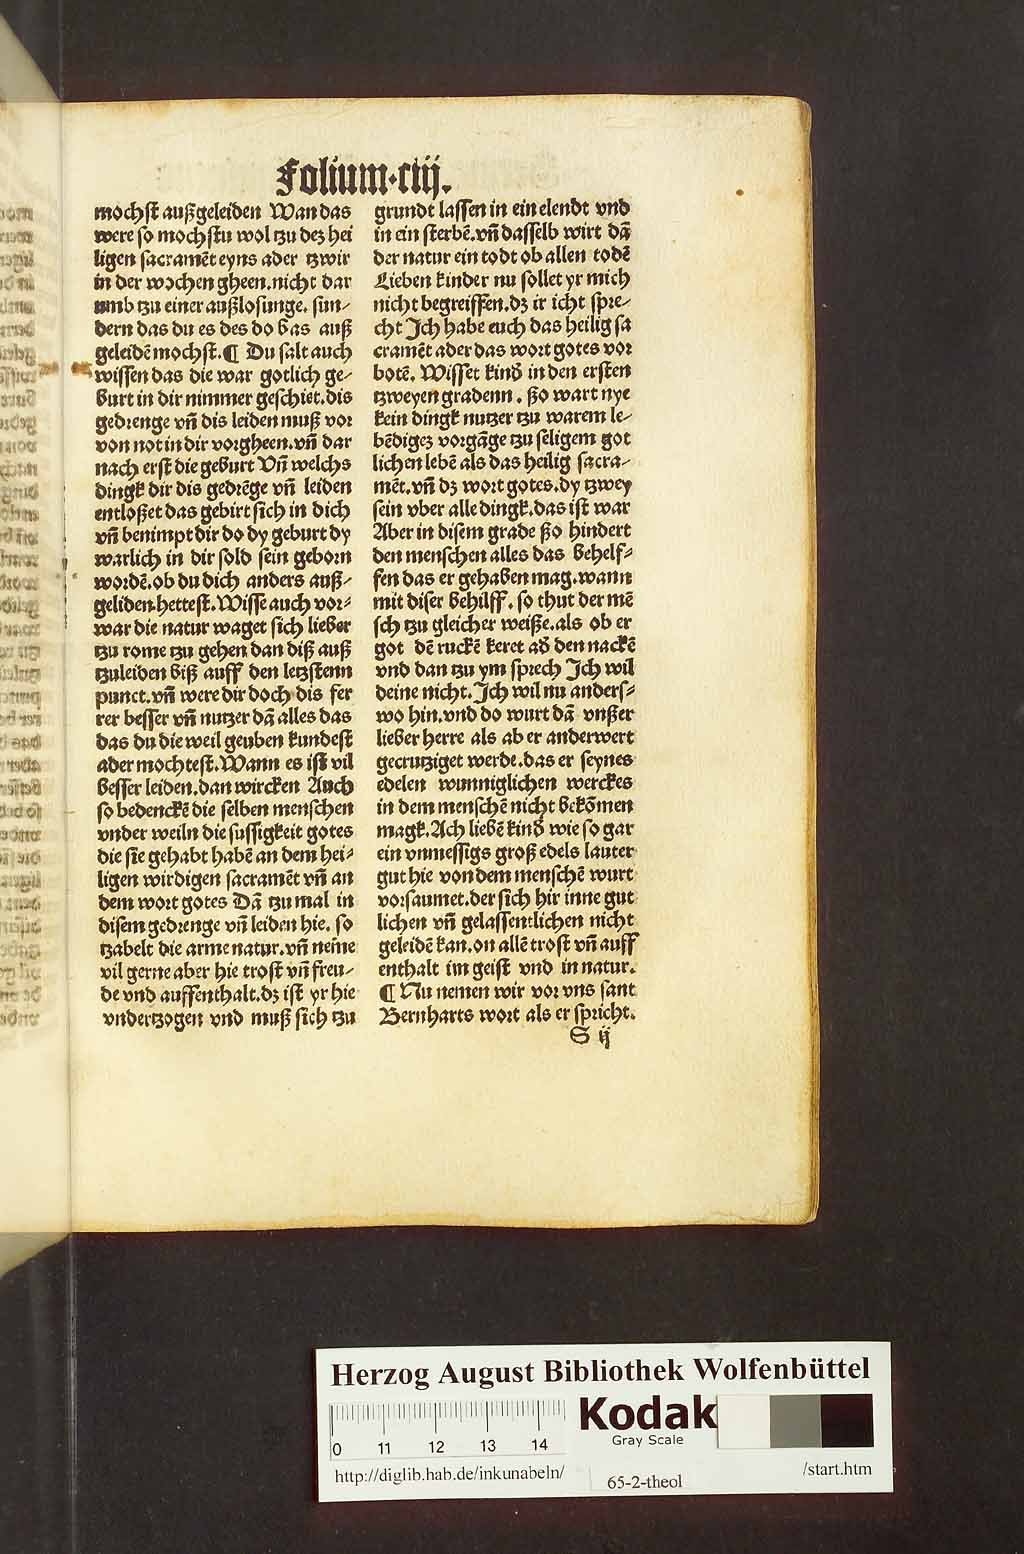 Folium·ciij.
mochst außgeleiden Wan das
were so mochstu wol tzu dez hei
ligen sacramēt eyns ader tzwir
in der wochen gheen. nicht dar
umb tzu einer außlosunge. sun-
dern das du es des do bas auß
geleidē mochst. ¶ Du salt auch
wissen das die war gotlich ge-
burt in dir nimmer geschiet. dis
gedrenge vñ dis leiden muß vor
von not in dir vorgheen. vñ dar
nach erst die geburt Vñ welchs
dingk dir dis gedrēge vñ leiden
entloßet das gebirt sich in dich
vñ benimpt dir do dy geburt dy
warlich in dir sold sein geborn
wordē. ob du dich anders auß-
geliden hettest. Wisse auch vor-
war die natur waget sich lieber
tzu rome tzu gehen dan diß auß
tzuleiden biß auff den letzstenn
punct. vñ were dir doch dis fer
rer besser vñ nutzer dā alles das
das du die weil geuben kundest
ader mochtest. Wann es ist vil
besser leiden. dan wircken Auch
so bedenckē die selben menschen
vnder weiln die sussigkeit gotes
die sie gehabt habē an dem hei-
ligen wirdigen sacramēt vñ an
dem wort gotes Dā tzu mal in
disem gedrenge vñ leiden hie. so
tzabelt die arme natur. vñ neme
vil gerne aber hie trost vñ freu-
de vnd auffenthalt. dz ist yr hie
vndertzogen vnd muß sich tzu
grundt lassen in ein elendt vnd
in ein sterbē. vñ dasselb wirt dā
der natur ein todt ob allen todē
Lieben kinder nu sollet yr mich
nicht begreiffen. dz ir icht spre-
cht Ich habe euch das heilig sa
cramēt ader das wort gotes vor
botē. Wisset kind in den ersten
tzweyen gradenn. ßo wart nye
kein dingk nutzer tzu warem le-
bēdigez vorgāge tzu seligem got
lichen lebē als das heilig sacra-
mēt. vñ dz wort gotes. dy tzwey
sein vber alle dingk. das ist war
Aber in disem grade ßo hindert
den menschen alles das behelf-
fen das er gehaben mag. wann
mit diser behilff. so thut der mē
sch tzu gleicher weiße. als ob er
got dē ruckē keret ad den nackē
vnd dan tzu ym sprech Ich wil
deine nicht. Ich wil nu anders-
wo hin. vnd do wurt dā vnßer
lieber herre als ab er anderwert
gecrutziget werde. das er seynes
edelen wunniglichen werckes
in dem menschē nicht bekōmen
magk. Ach liebē kind wie so gar
ein vnmessigs groß edels lauter
gut hie von dem menschē wurt
vorsaumet. der sich hir inne gut
lichen vñ gelassentlichen nicht
geleidē kan. on allē trost vñ auff
enthalt im geist vnd in natur.
¶ Nu nemen wir vor vns sant
Bernharts wort als er spricht.
S ij
Herzog August Bibliothek Wolfenbüttel
0 11 12 13 14
Kodak
Gray Scale
http://diglib.hab.de/inkunabeln/
65-2-theol
/start.htm